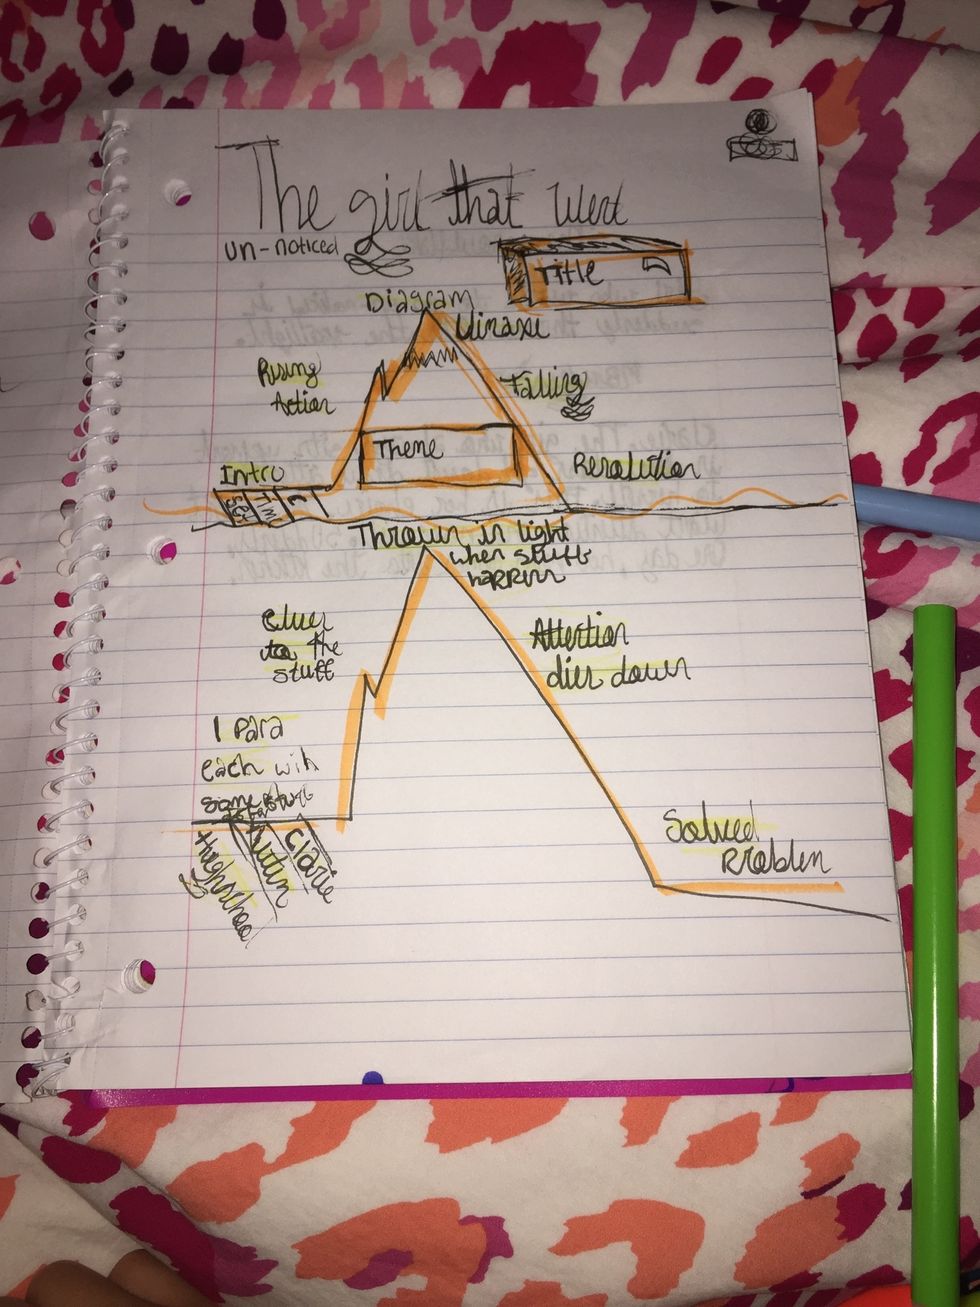 The girl that went
un-noticed
Title
Diagram
Climaxe
Rising
Action
Falling
Theme
Intro
Resolution
Set
Tim
C
Thrown in light
when stuffs
happen
Clues
to the
stuff
Attention
dies down
1 Para
each with
some
Highschool
Autumn
Clarie
Solved
Problem